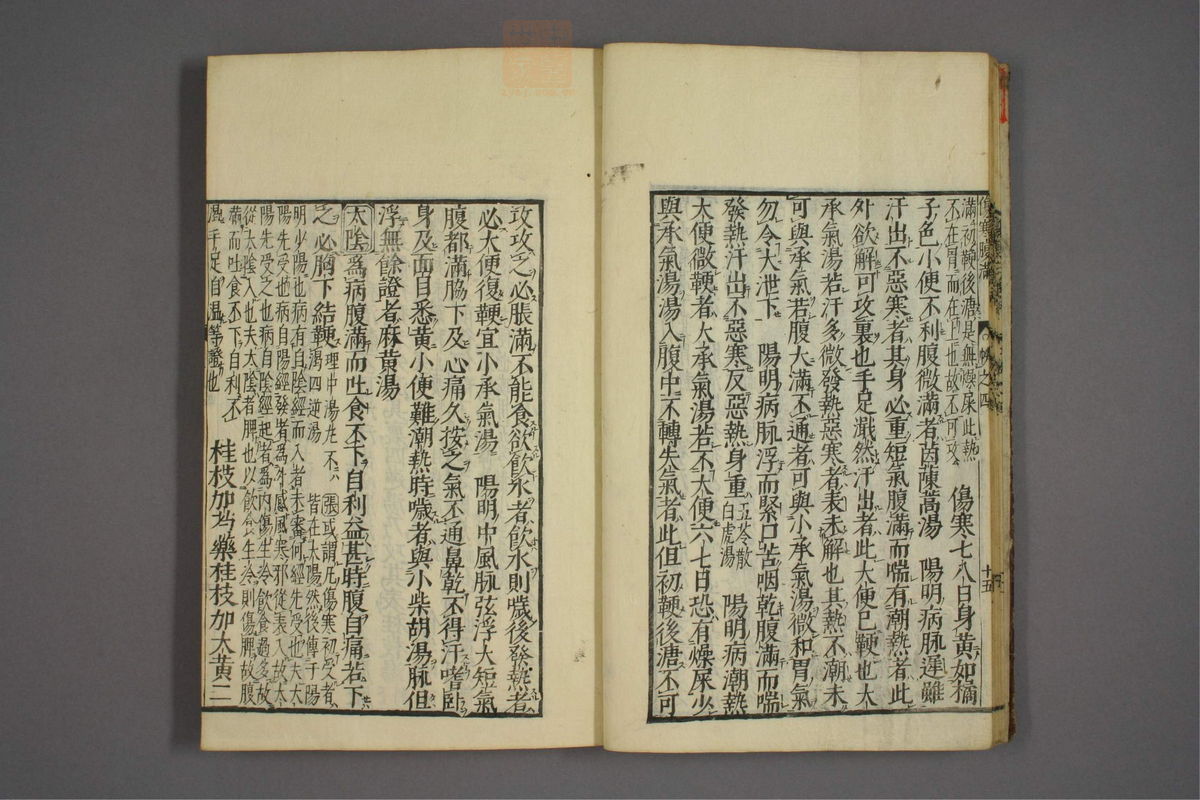 滿初鞕後溏是無燥屎此熱
不在胃而在上也故不可攻
傷寒七八日身黃如橘
子色小便不利腹微滿者茵蔯蒿湯 陽明病脉遲雖
汗出不惡寒者其身必重短氣腹滿而喘有潮熱者此
外欲解可攻裏也手足濈然汗出者此大便已鞕也大
承氣湯若汗多微發熱惡寒者表未解也其熱不潮未
可與承氣若腹大滿不通者可與小承氣湯微和胃氣
勿令大泄下 陽明病脉浮而緊口苦咽乾腹滿而喘
發熱汗出不惡寒反惡熱身重
五苓散
白虎湯
陽明病潮熱
大便微鞕者大承氣湯若不大便六七日恐有燥屎少
與承氣湯湯入腹中不轉失氣者此但初鞕後溏不可
攻攻之必脹滿不能食欲飮水者飮水則噦後發熱者
必大便復鞕宜小承氣湯 陽明中風脉弦浮大短氣
腹都滿脇下及心痛久按之氣不通鼻乾不得汗嗜臥
身及面目悉黃小便難潮熱時噦者與小柴胡湯脉但
浮無餘證者麻黃湯
太陰爲病腹滿而吐食不下自利益甚時腹自痛若下
之必胸下結鞕
理中湯丸不
瀉四逆湯
張或謂凡傷寒初受者
皆在太陽然後傳于陽
明少陽也病有自陰經而入者未審何經先受也夫太
陽先受也病自陽經發者爲外感風寒邪從表入故太
陽先受之也病自陰經起者爲内傷生冷飮食過多故
從太陰入也夫太陰者脾也以飮食生冷則傷脾故腹
滿而吐食不下自利不
溫手足自溫等證也
桂枝加芍藥桂枝加大黃二
十五